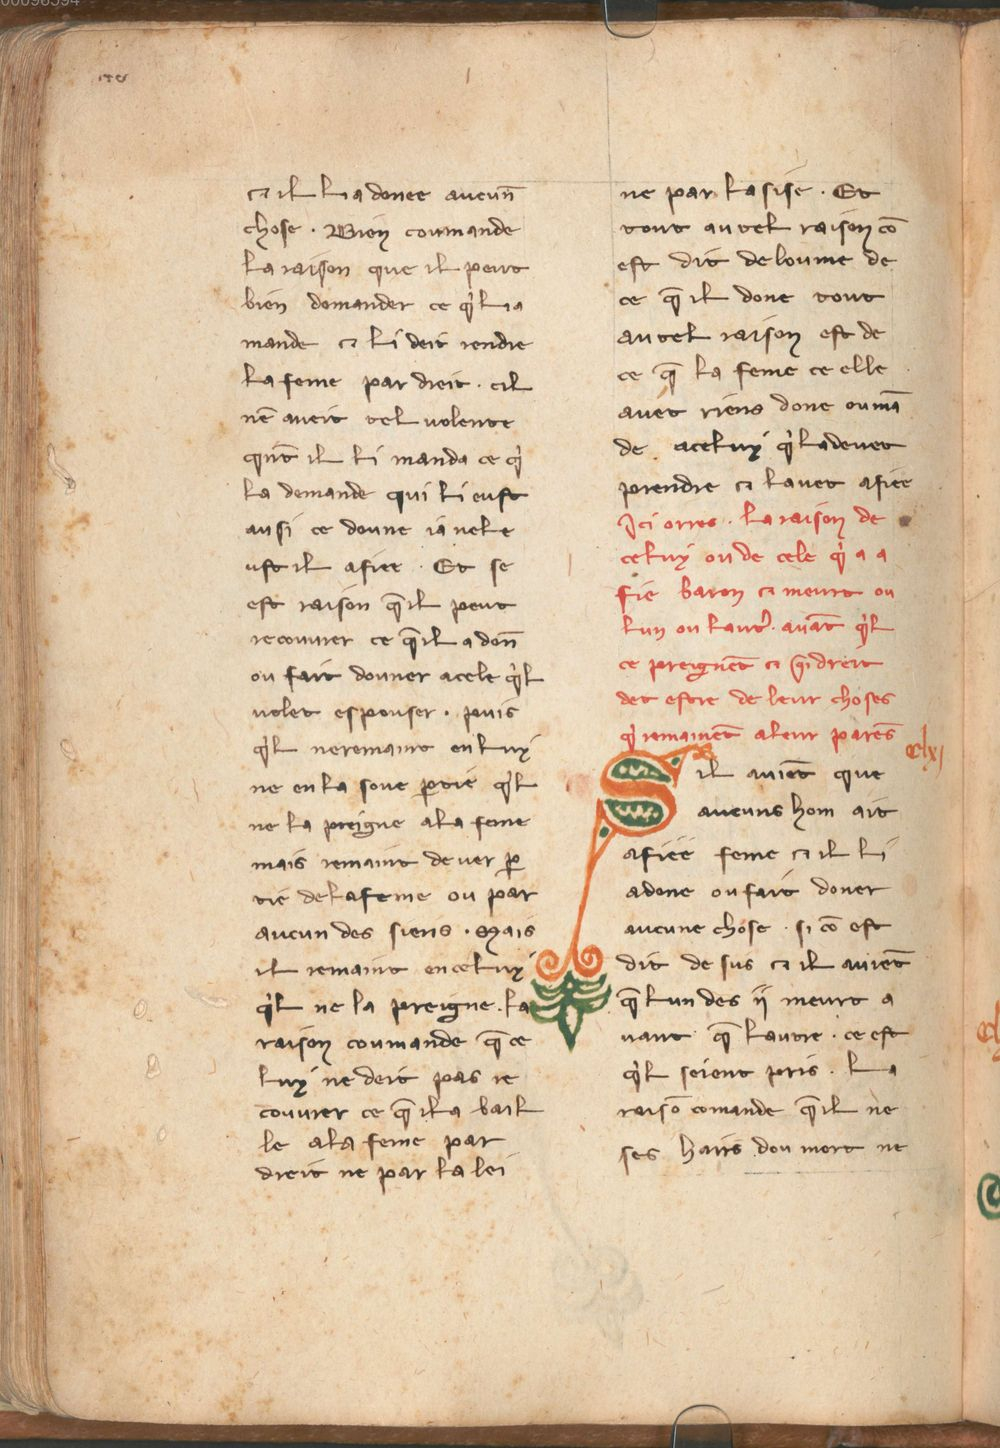 ⁊ il li a donee aucun̄
chose . Bien coumande
la raison que il peut
bien domander ce q̇l i a
mande ⁊ li deit rendre
la feme par dreit . cil
nē aveit tel volente
quāt il li manda ce q̇
la demande qui li eust
ausi ce doune ia nel e
ust il afiee . Et se
est raison q̄ il peut
recouvrer ce q̄ il a don̄
ou fait douner a cele q̇l
volet espouser . puis
q̇l ne remaint en luy
ne en la soue ꝑtie q̇l
ne la preigne a la feme
mais remaint de ver ꝑ
tie de la feme ou par
aucun des siens . Mais
il remaint en celuy
q̇l ne la preigne . la
raison coumande q̄ ce
luy ne deit pas re
couvrer ce q̄ il a bail
le a la feme par
dreit ne par la lei
ne par l asise . Et
tout autel raison cō
est dit de loume de
ce q̄ il done tout
autel raison est de
ce q̄ la feme ce elle
avet riens done ou mā
de a celuy q̇ la devet
prendre ⁊ lavet afiee
Ici orres . la raison de
celuy ou de cele q̇ a a
fie baron ⁊ meurt ou
lun ou laut᷑ . avāt q̇l
ce preignēt ⁊ q̄l dreit
det estre de leur choses
q̇ remainēt a leur parēs
clxj
Sil aviēt que
aucuns hom ait
afiee feme ⁊ il li
a done ou fait doner
aucune chose . si cō est
dit de sus ⁊ il aviēt
q̄ lun des ij meurt a
vant q̄ lautre . ce est
q̇l seient pris . la
raisō comande q̄ il ne
ses hairs dou mort ne